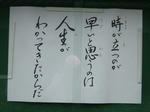 時が立つのが
早いと思うのは
人生が
わかってきたからだ